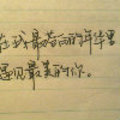 在我最苍白的年华里
遇见最美的你。